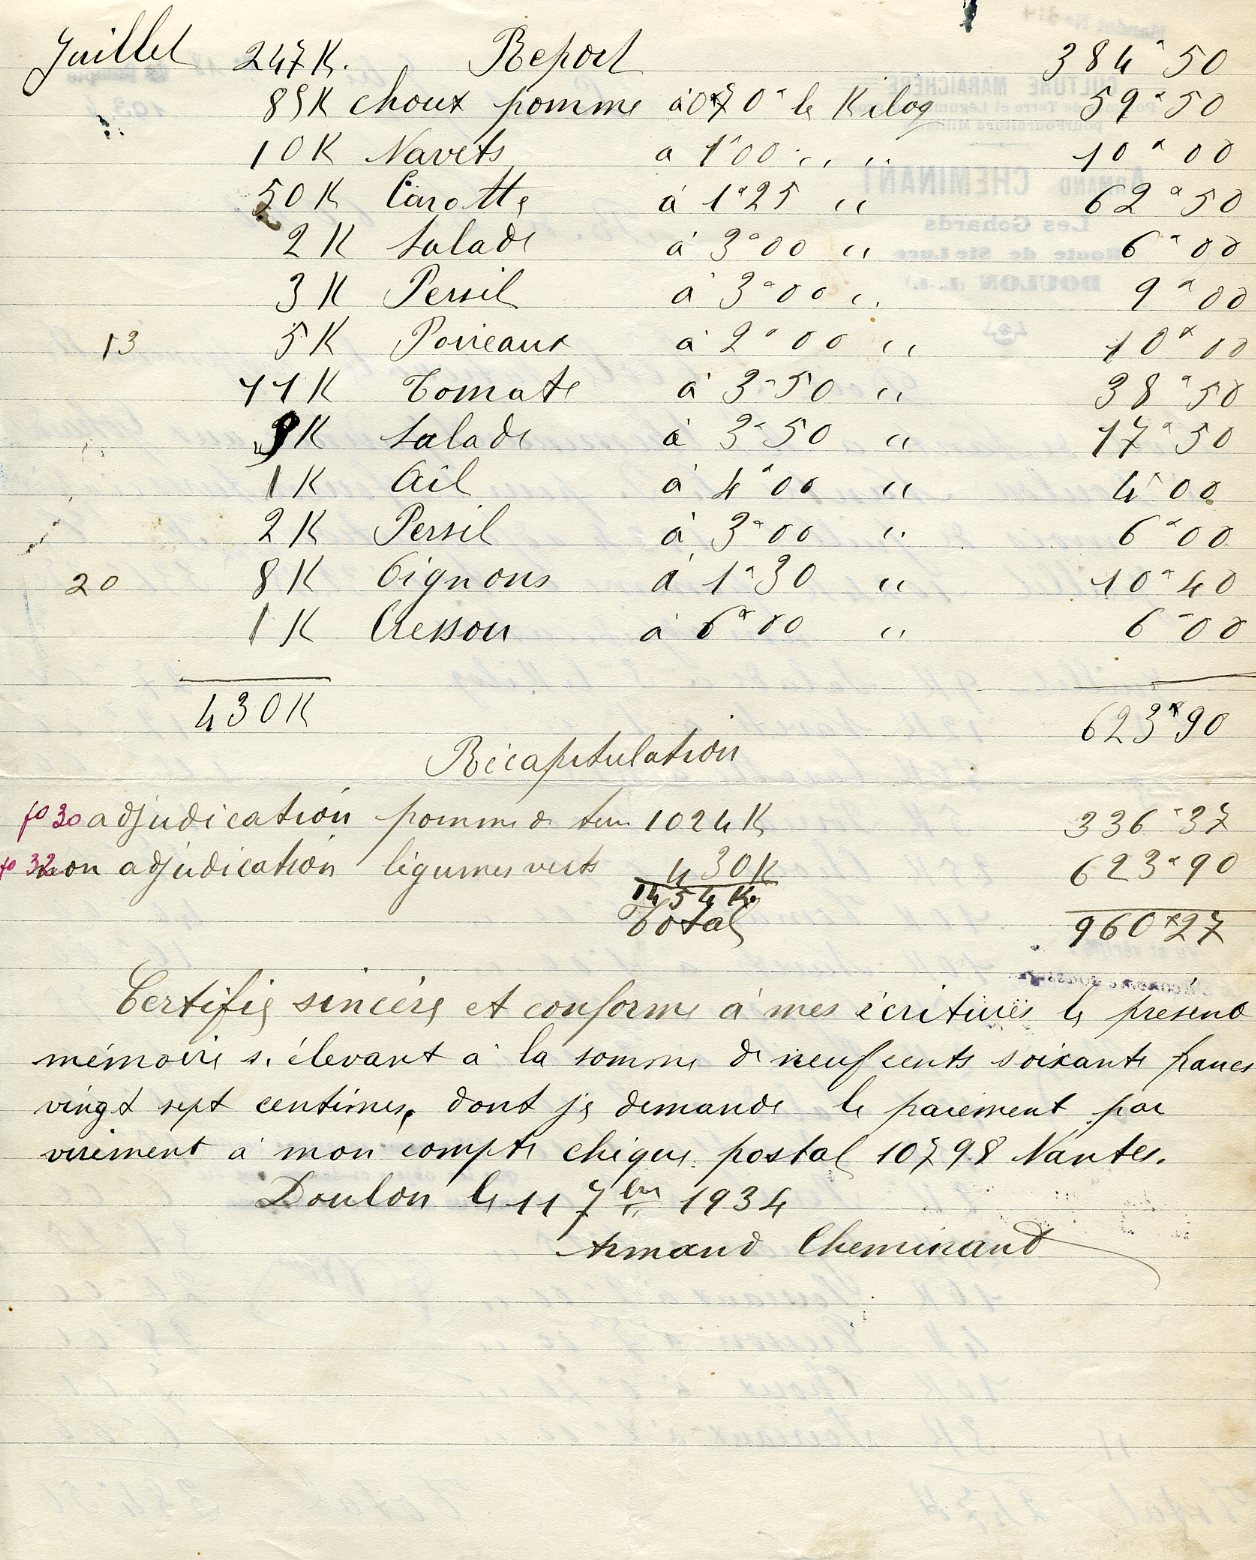 Juillet 247K. Report 384ᶠ50
85K choux pomme à 0ᶠ70 le Kilog 59ᶠ50
10K Navets à 1ᶠ00 〃 10ᶠ00
50K Carotte à 1ᶠ25 〃 62ᶠ50
2K Salade à 3ᶠ00 〃 6ᶠ00
3K Persil à 3ᶠ00 〃 9ᶠ00
13 5K Poireaux à 2ᶠ00 〃 10ᶠ00
11K Tomate à 3ᶠ50 〃 38ᶠ50
Salade à 3ᶠ50 〃 17ᶠ50
1K Ail à 4ᶠ00 〃 4ᶠ00
2K Persil à 3ᶠ00 〃 6ᶠ00
20 8K Oignons à 1ᶠ30 〃 10ᶠ40
1K Cresson à 6ᶠ00 〃 6ᶠ00
430K 623ᶠ90
Récapitulation
fº 30 adjudication pomme de terre 1024K 336ᶠ37
fº 32 non adjudication légumes verts 430K 623ᶠ90
1454K.
Total 960ᶠ27
Certifie sincère et conforme à mes écritures le présent
mémoire s'élevant à la somme de neuf cents soixante francs
vingt sept centimes, dont je demande le paiement par
virement à mon compte chèque postal 10798 Nantes.
Doulon le 11 7bre 1934
Armand Cheminant